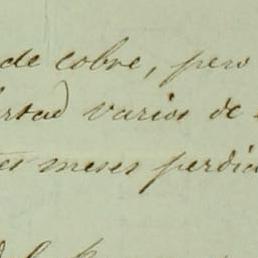 de cobre, pero
rtad varios de
tes meses perdia